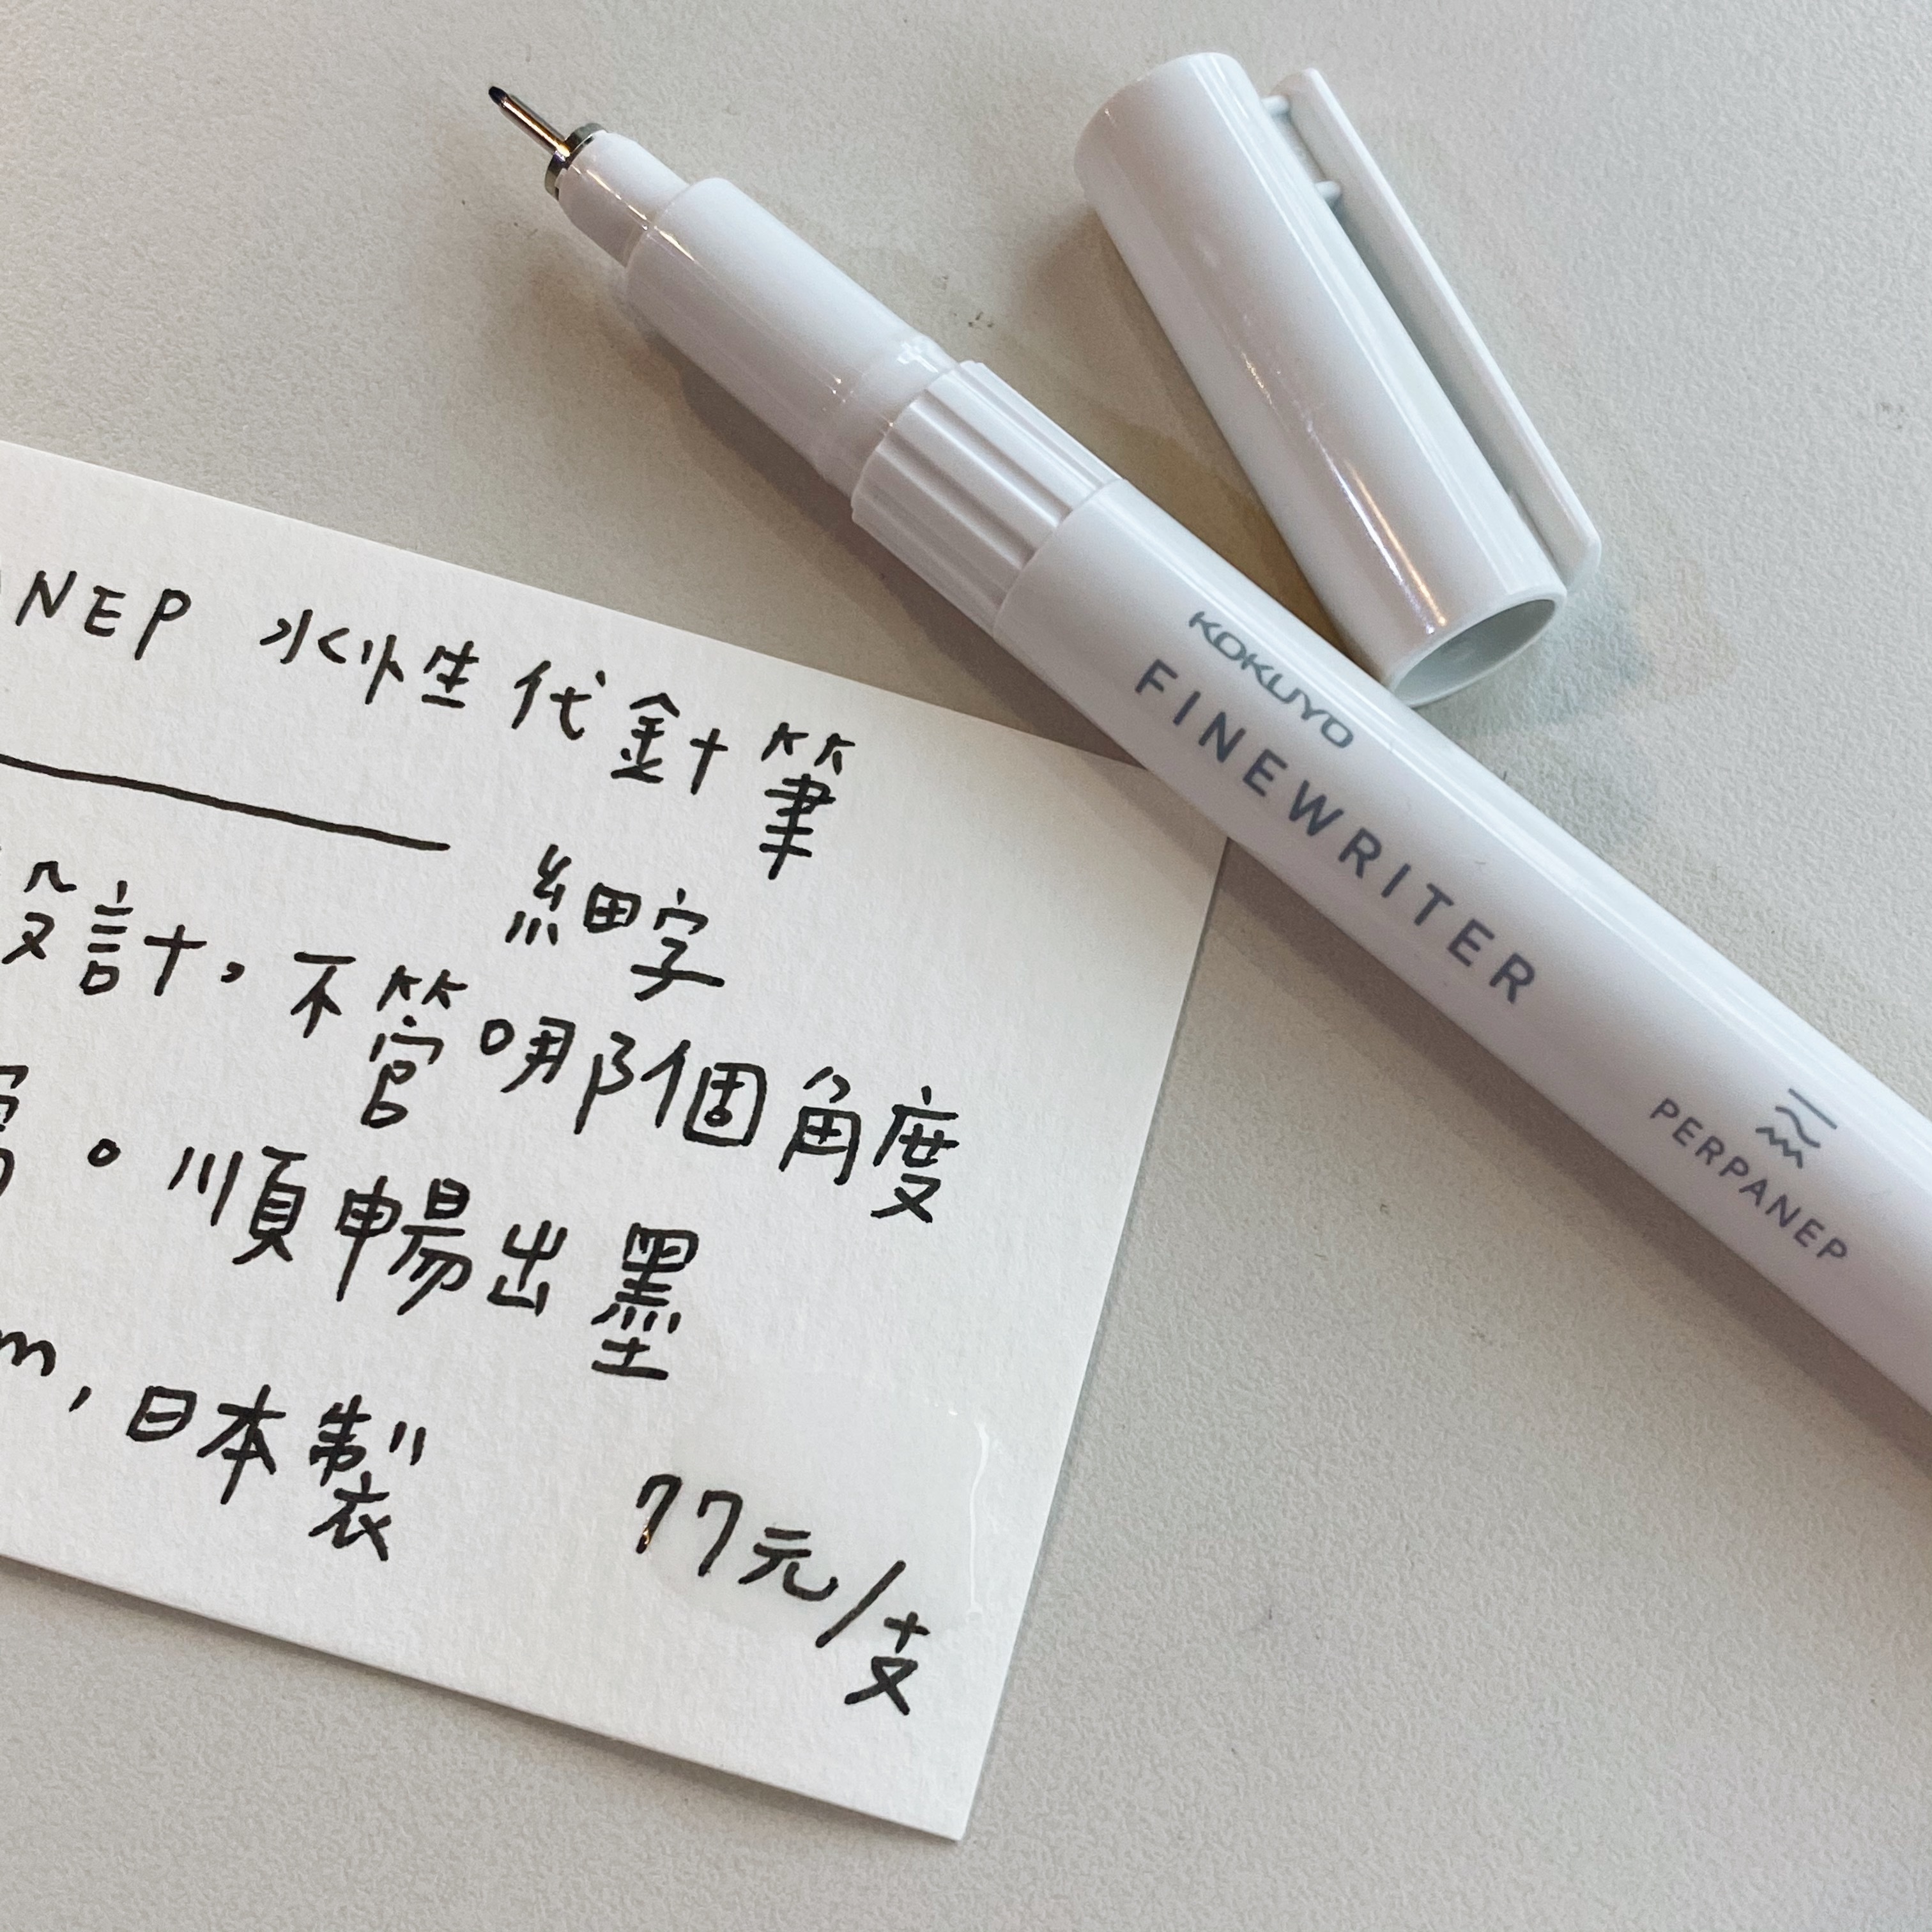 NEP 水性代針筆
細字
設計,不管哪個角度
。順暢出墨
m,日本製
77元/支
KOKUYO
FINEWRITER
PERPANEP